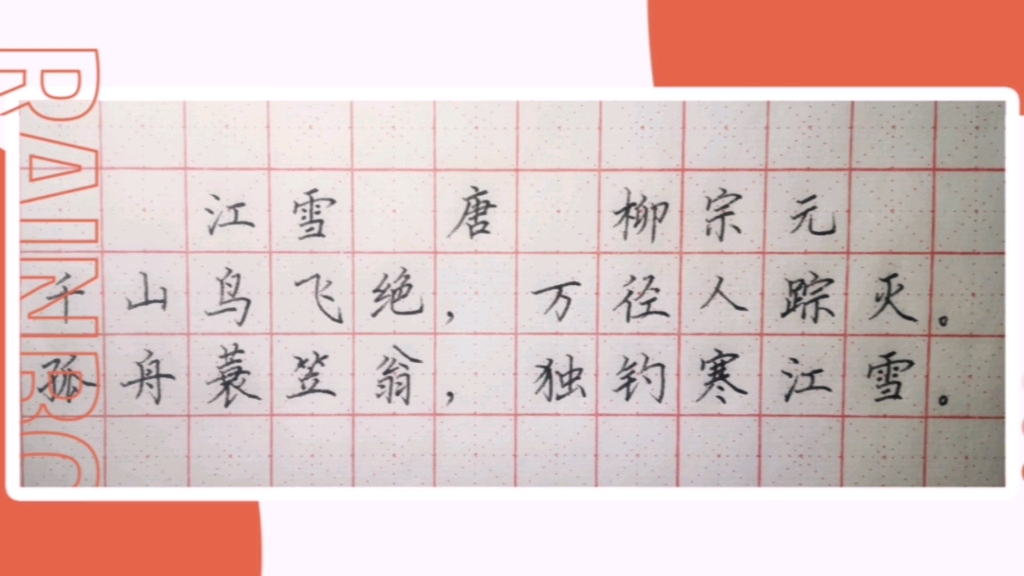 江雪 唐 柳宗元
千山鸟飞绝，万径人踪灭。
孤舟蓑笠翁，独钓寒江雪。
RAINBO